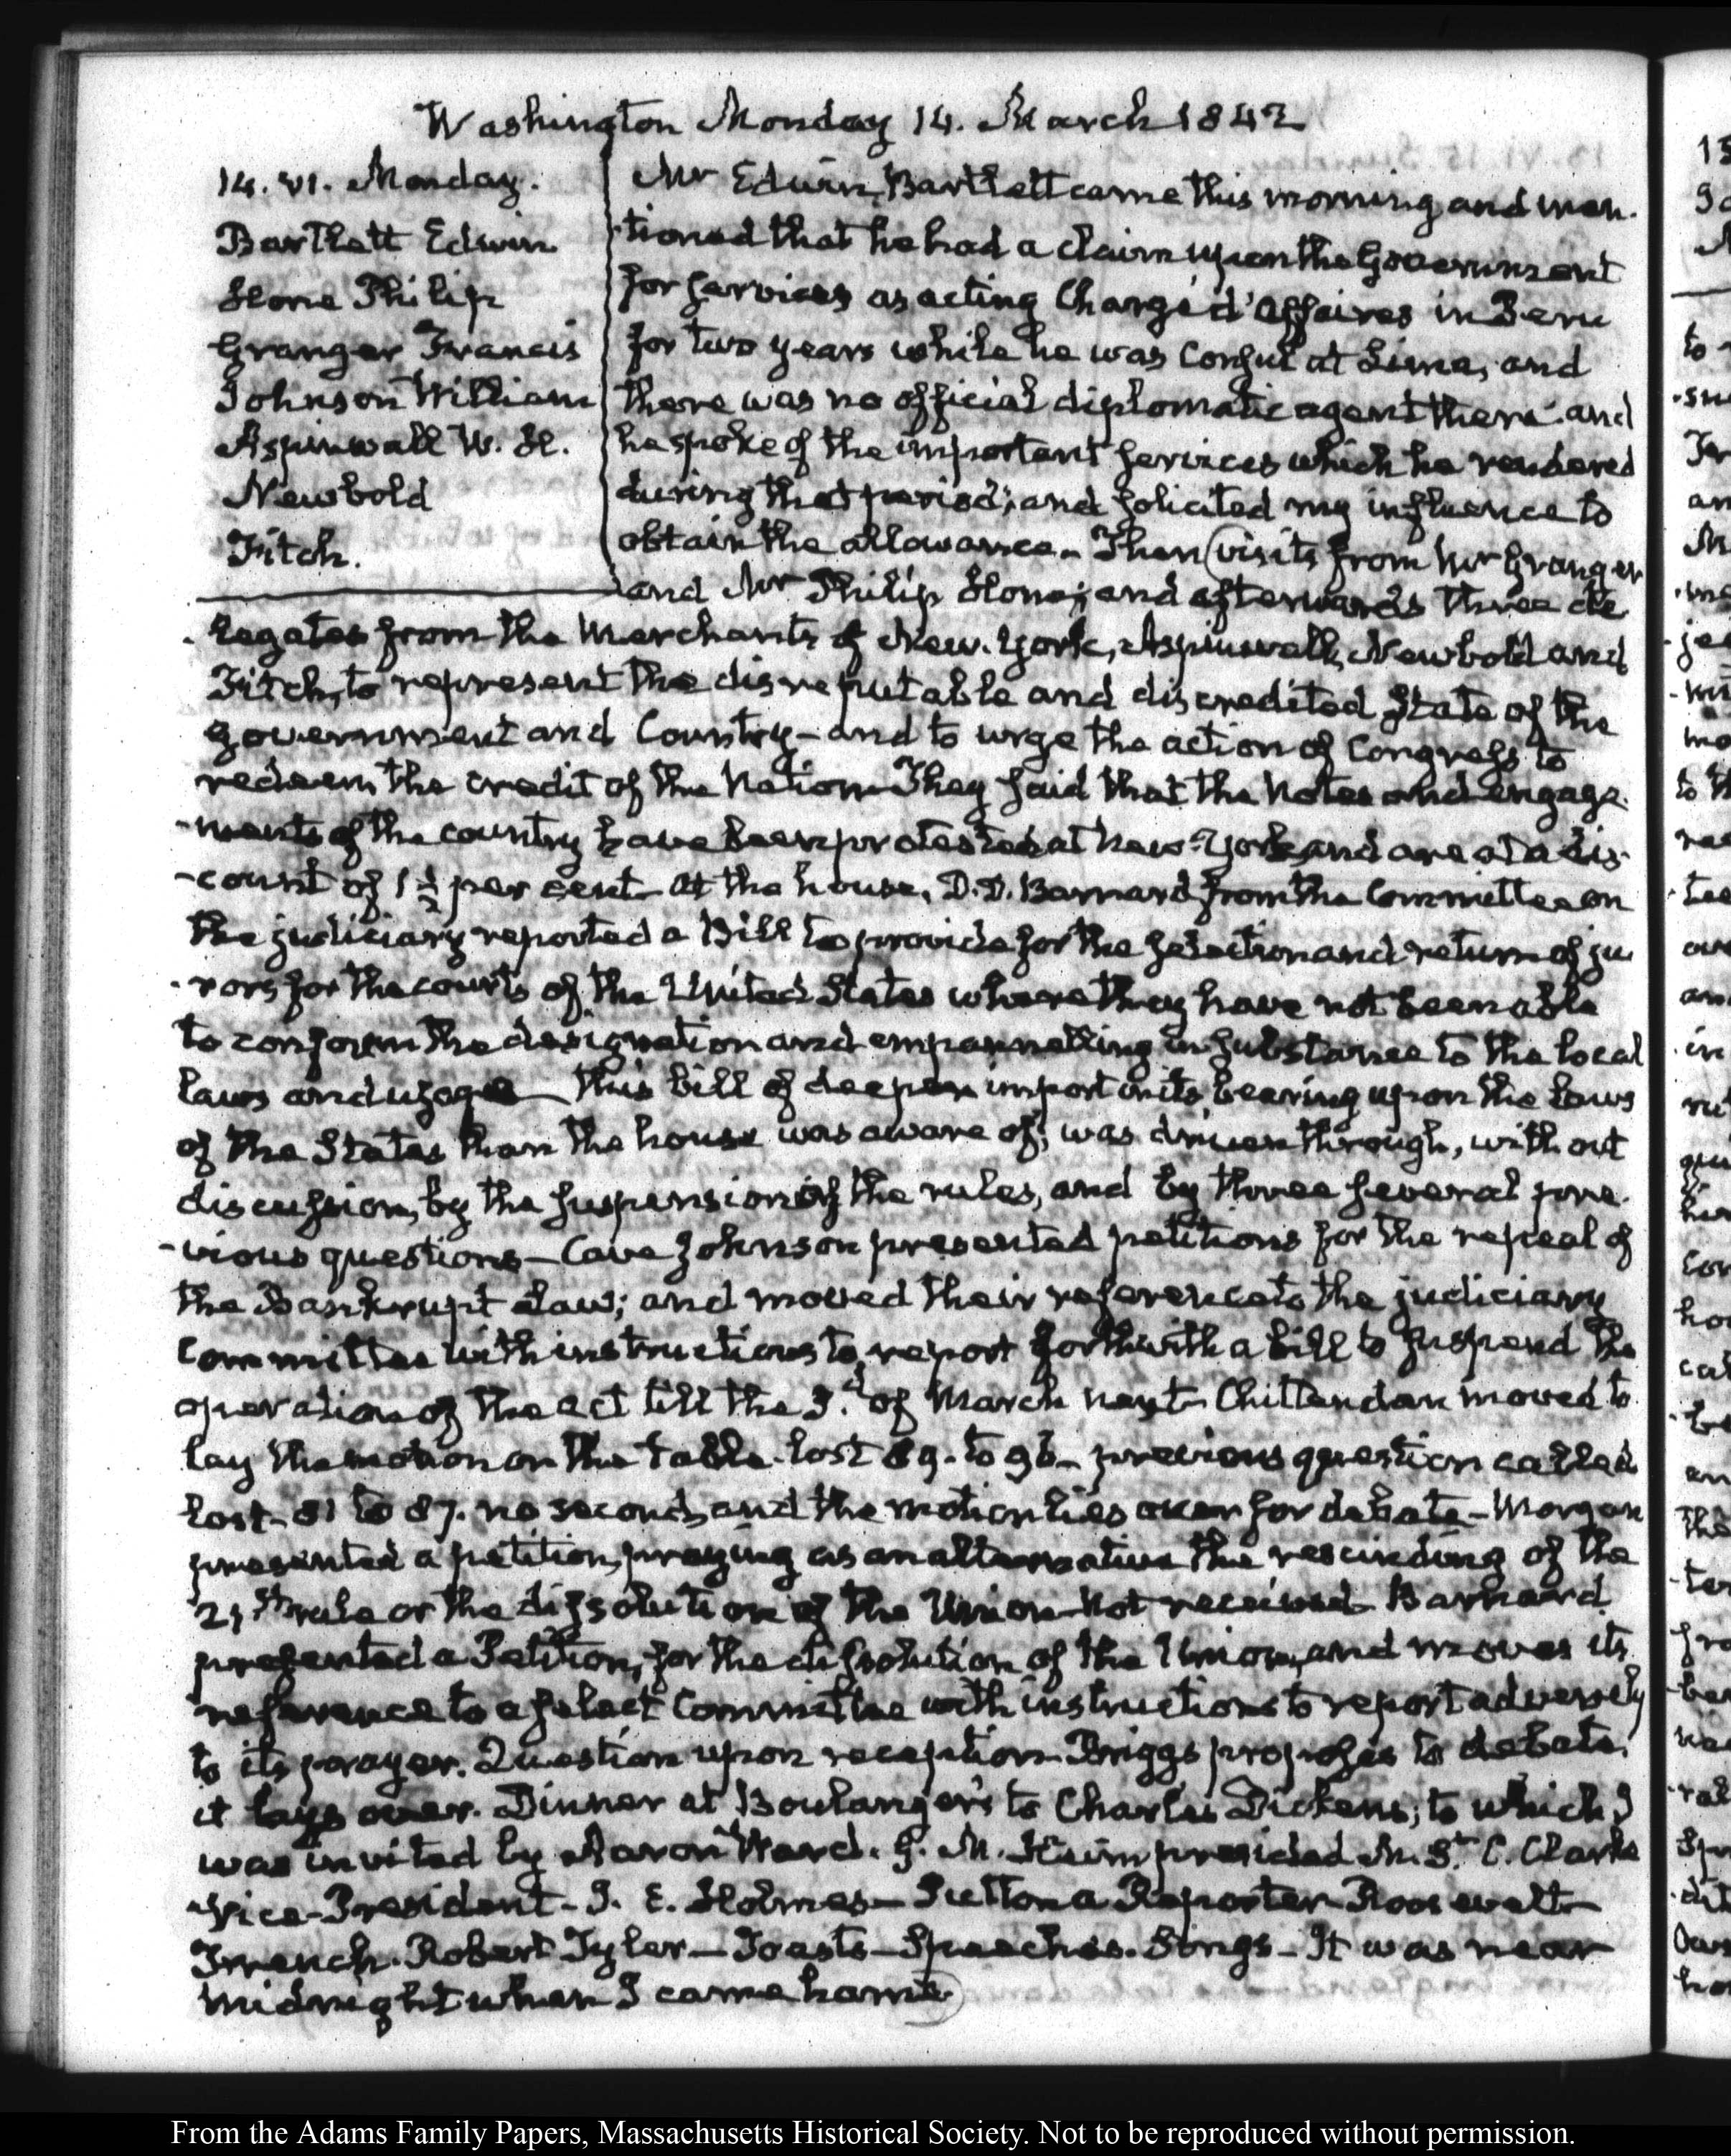 Washington Monday 14. March 1842
14. VI. Monday.
Bartlett Edwin
Hone Philip
Granger Francis
Johnson William
Aspinwall W. H.
Newbold
Fitch.
Mr Edwin Bartlett came this morning and men-
-tioned that he had a claim upon the Government
for services as acting Chargé d'affaires in Peru
for two years while he was Consul at Lima, and
there was no official diplomatic agent there. and
he spoke of the important services which he rendered
during that period; and solicited my influence to
obtain the allowance. Then visits from Mr Granger
and Mr Philip Hone; and afterwards three de
-legates from the Merchants of New-York, Aspinwall, Newbold and
Fitch, to represent the disreputable and discredited State of the
government and Country—and to urge the action of Congress to
redeem the credit of the Nation—They said that the Notes and engage-
-ments of the country have been protested at New-York and are at a dis-
-count of 1½ per cent—At the house, D. D. Barnard from the Committee on
the judiciary reported a Bill to provide for the selection and return of ju
-rors for the courts of the United States where they have not been able
to conform the designation and empannelling in substance to the local
laws and usage—This bill of deeper import in its bearing upon the laws
of the States than the house was aware of; was driven through, without
discussion, by the suspension of the rules, and by three several pre-
-vious questions—Cave Johnson presented petitions for the repeal of
the Bankrupt Law; and moved their reference to the judiciary
Committee with instructions to report forthwith a bill to suspend the
operation of the act till the 3.d of March next—Chittenden moved to
lay the motion on the table. lost 89. to 96—previous question called
lost—81 to 87. no second, and the motion lies over for debate—Morgan
presented a petition, praying as an alternative the rescinding of the
21st rule or the dissolution of the Union—Not received—Barnard
presented a Petition, for the dissolution of the Union, and moves its
reference to a select Committee with instructions to report adversely
to its prayer. Question upon reception—Briggs proposes to debate.
it lays over. Dinner at Boulanger's to Charles Dickens; to which I
was invited by Aaron Ward. G. M. Keim presided M. St C. Clarke
Vice-President—I. E. Holmes—Sutton a Reporter—Roosevelt—
French. Robert Tyler—Toasts—Speeches. Songs—It was near
midnight when I came home
From the Adams Family Papers, Massachusetts Historical Society. Not to be reproduced without permission.